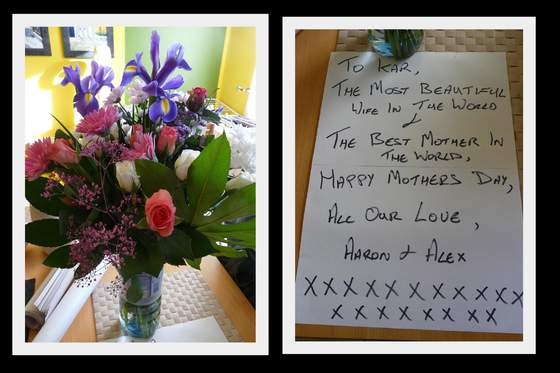 To Kar,
The Most Beautiful
Wife In The World
&
The Best Mother In
The World,
Happy Mothers Day,
All Our Love,
Aaron & Alex
X X X X X X X X X X X X
X X X X X X X X